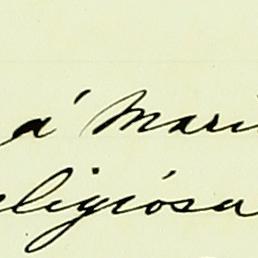 á Mari
eligiósa